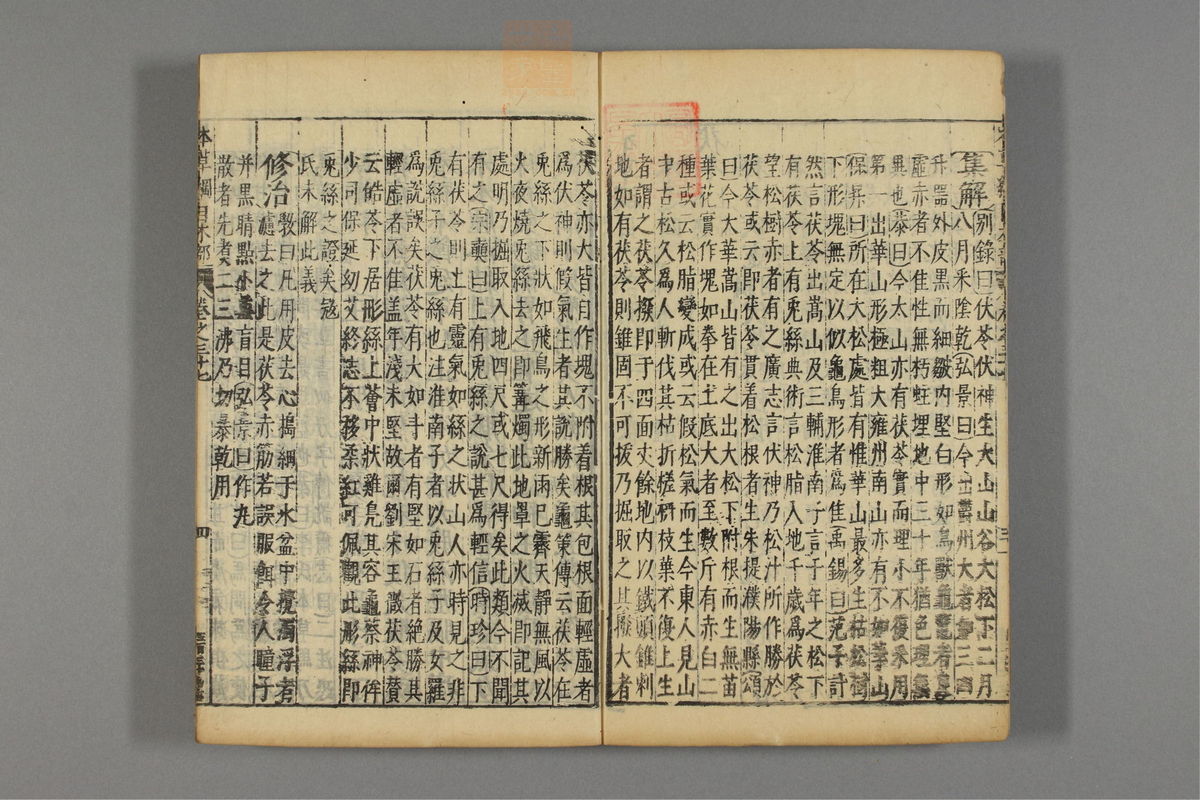 集解別錄曰伏苓伏神生大山山谷大松下二月
八月采陰乾弘景曰今出鬱州大者如三四
升器外皮黑而細皺內堅白形如鳥獸龜鱉者良
虛赤者不佳性無朽蛀埋地中三十年猶色理無
異也恭曰今太山亦有茯苓實而理小不復采用
第一出華山形極粗大雍州南山亦有不如華山
保昇曰所在大松處皆有惟華山最多生枯松樹
下形塊無定以似龜鳥形者為佳禹錫曰范子計
然言茯苓出嵩山及三輔淮南子言千年之松下
有茯苓上有兎絲典術言松脂入地千歲為茯苓
望松樹赤者有之廣志言伏神乃松汁所作勝於
茯苓或云即茯苓貫着松根者生朱提濮陽縣頌
曰今大華嵩山皆有之出大松下附根而生無苗
葉花實作塊如拳在土底大者至數斤有赤白二
種或云松脂變成或云假松氣而生今東人見山
中古松久為人斬伐其枯折槎枿枝葉不復上生
者謂之茯苓撥即于四面丈餘地內以鐵頭錐刺
地如有茯苓則錐固不可拔乃掘取之其撥大者
茯苓亦大皆自作塊不附着根其包根面輕虛者
為伏神則假氣生者其說勝矣龜策傳云茯苓在
兎絲之下狀如飛鳥之形新雨已霽天靜無風以
火夜燒兎絲去之即篝燭此地罩之火滅即記其
處明乃掘取入地四尺或七尺得矣此類今不聞
有之宗奭曰上有兎絲之說甚為輕信時珍曰下
有茯苓則上有靈氣如絲之狀山人亦時見之非
兎絲子之兎絲也注淮南子者以兎絲子及女羅
為說誤矣茯苓有大如斗者有堅如石者絕勝其
輕虛者不佳盖年淺未堅故爾劉宋王微茯苓贊
云皓苓下居彤絲上薈中狀雞鳧其容龜蔡神侔
少司保延幼艾終志不移柔紅可佩觀此彤絲即
兎絲之證矣寇
氏未解此義
修治斅曰凡用皮去心搗細于水盆中攪濁浮者
濾去之此是茯苓赤筋若誤服餌令人瞳子
并黑睛點小兼盲目弘景曰作丸
散者先煮二三沸乃切暴乾用
本草綱目木部 卷之三十七 四